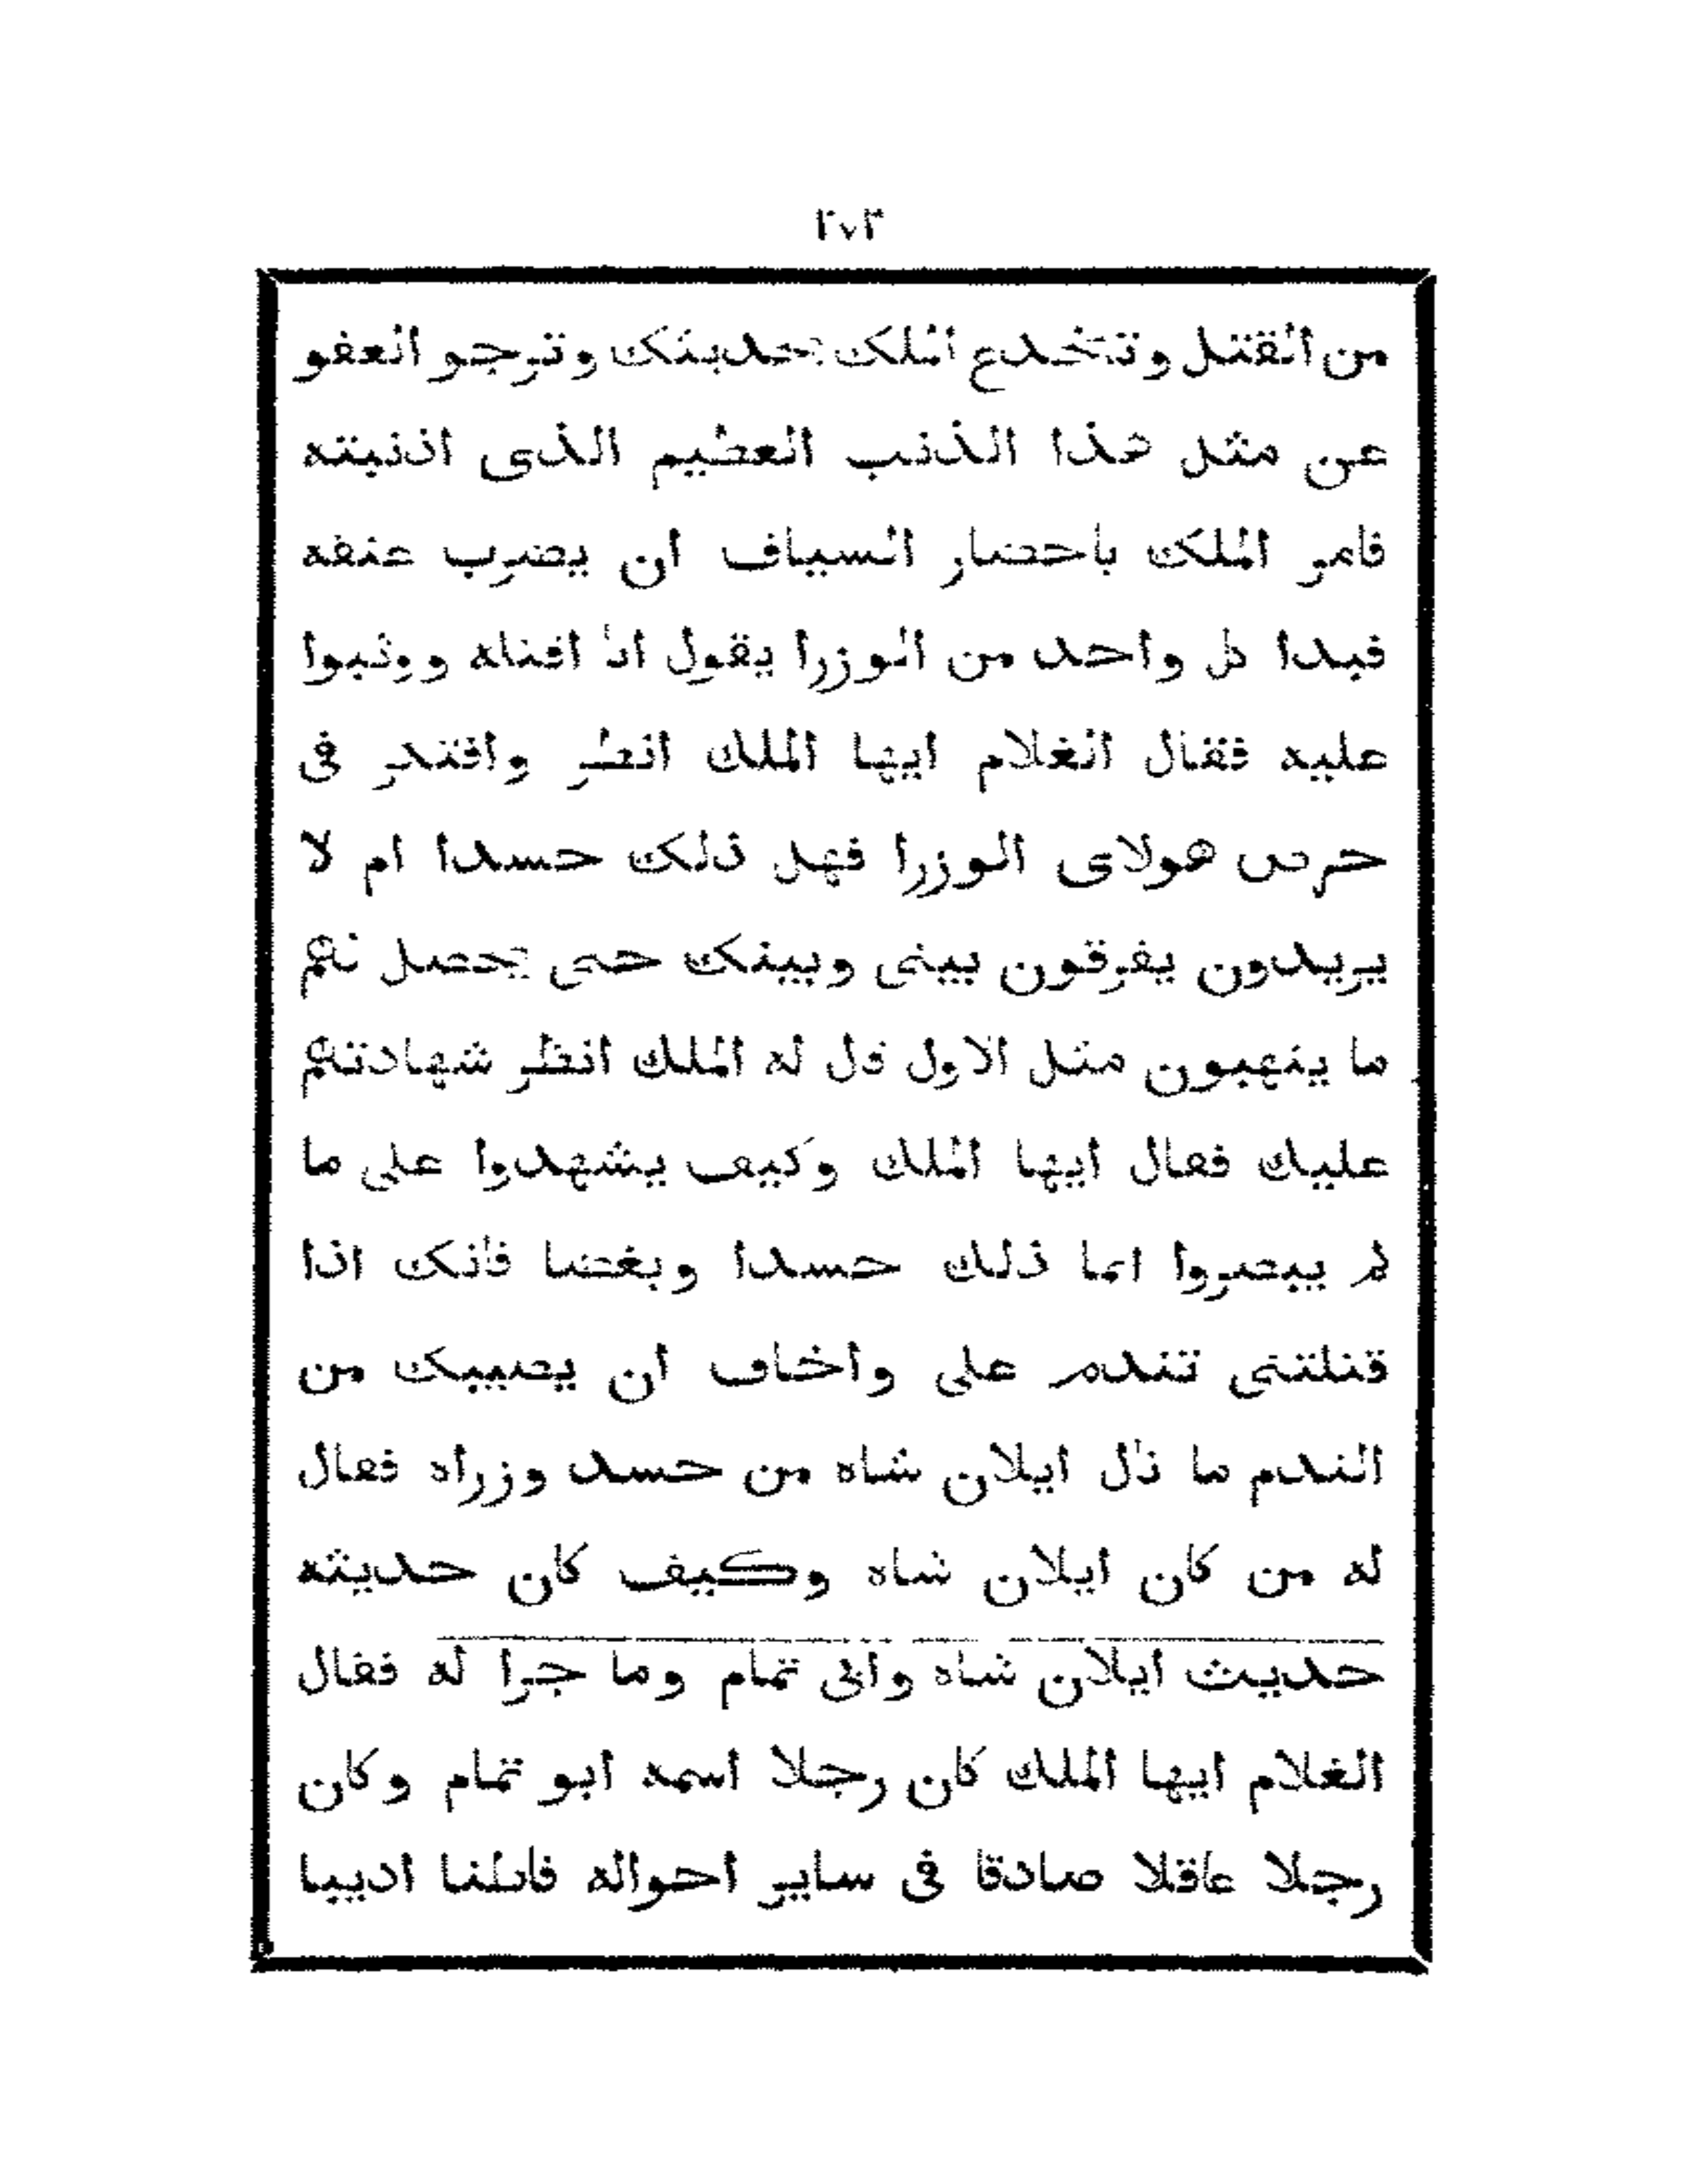 ٢٧٣
من القتل وتخدع الملك بحديثك وترجو العفو
عن مثل هذا الذنب العظيم الذى اذنبته
فامر الملك باحضار السياف ان يضرب عنقه
فبدا كل واحد من الوزرا يقول انا اقتله ووثبوا
عليه فقال الغلام ايها الملك انظر وافتكر فى
حرص هولاى الوزرا فهل ذلك حسدا ام لا
يريدون يفرقون بينى وبينك حتى يحصل لهم
ما ينهبون مثل الاول قال له الملك انظر شهادتهم
عليك فقال ايها الملك وكيف يشهدوا على ما
لم يبصروا انما ذلك حسدا وبغضا فانك اذا
قتلتنى تتندم على واخاف ان يصيبك من
الندم ما نال ايلان شاه من حسد وزراه فقال
له من كان ايلان شاه وكيف كان حديثه
حديث ايلان شاه وابى تمام وما جرا له فقال
الغلام ايها الملك كان رجلا اسمه ابو تمام وكان
رجلا عاقلا صادقا فى ساير احواله فاضلا اديبا